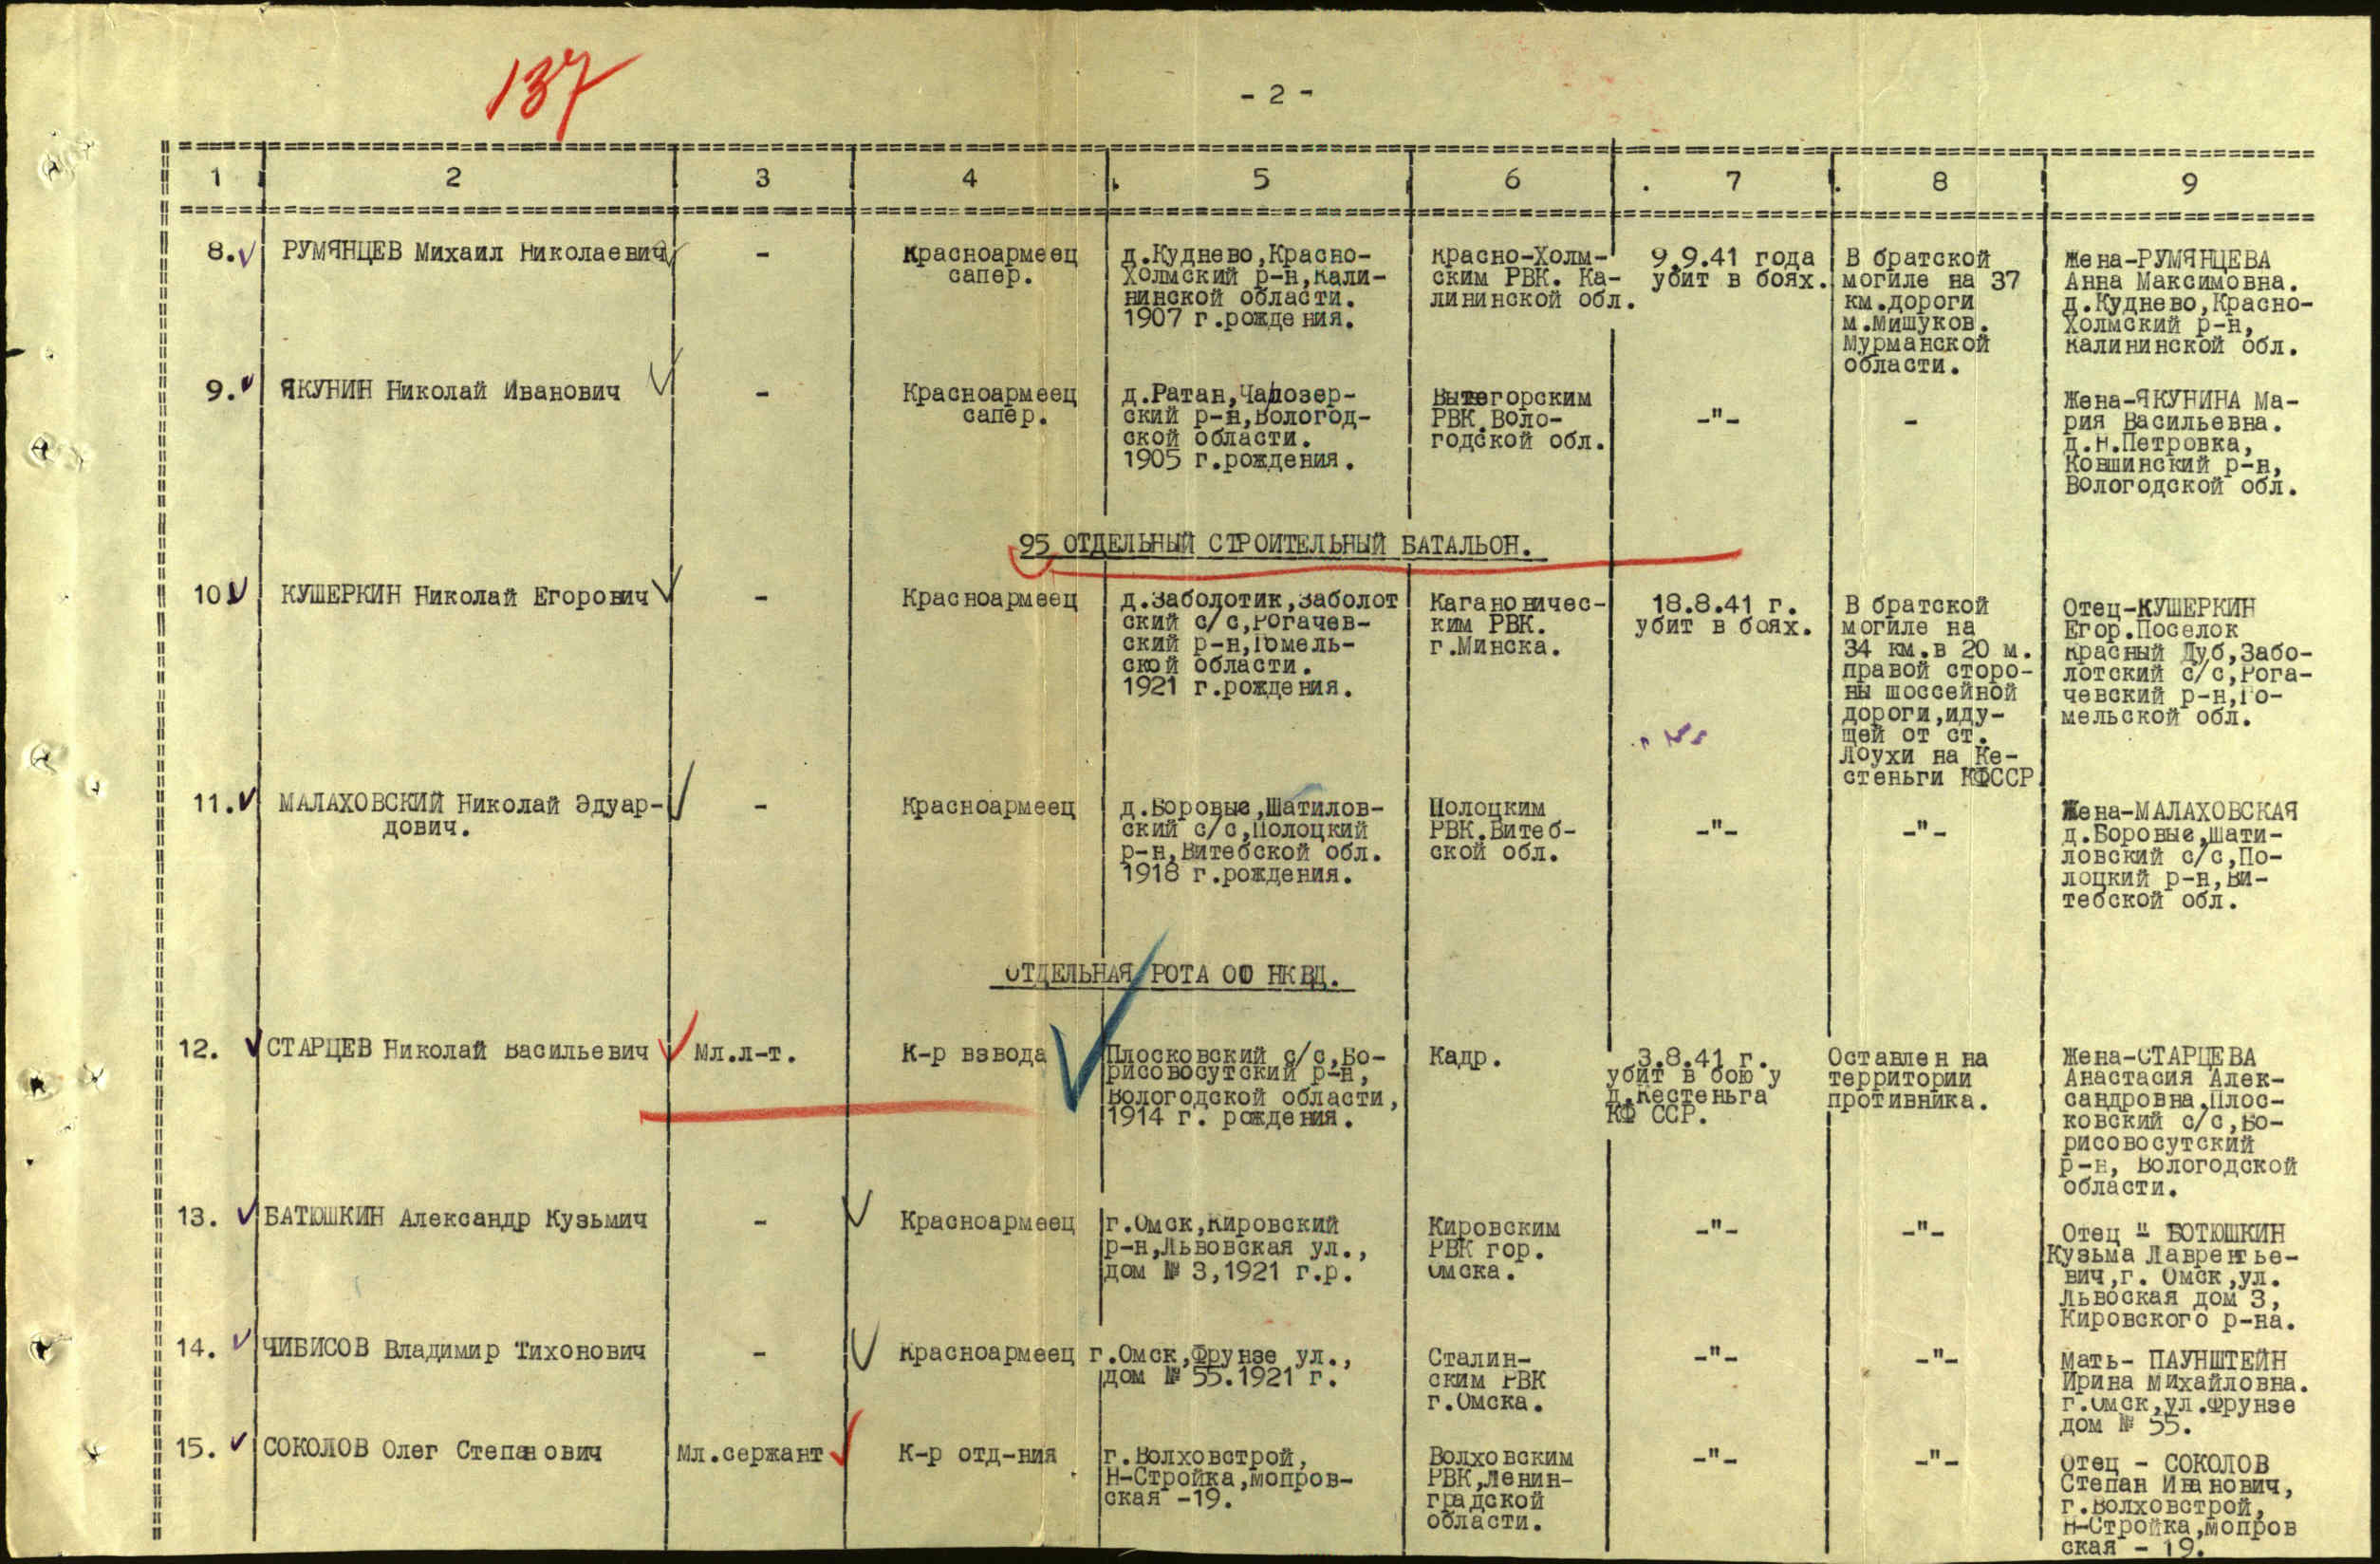 137
- 2 -
1 2 3 4 5 6 7 8 9
8. РУМЯНЦЕВ Михаил Николаевич
-
Красноармеец
сапер.
д.Куднево,Красно-
Холмский р-н,Кали-
нинской области.
1907 г.рождения.
Красно-Холм-
ским РВК. Ка-
лининской обл.
9.9.41 года
убит в боях.
В братской
могиле на 37
км.дороги
м.Мишуков.
Мурманской
области.
Жена-РУМЯНЦЕВА
Анна Максимовна.
д.Куднево,Красно-
Холмский р-н,
Калининской обл.
9. ЯКУНИН Николай Иванович
-
Красноармеец
сапер.
д.Ратан,Чапозер-
ский р-н,Вологод-
ской области.
1905 г.рождения.
Вытегорским
РВК.Воло-
годской обл.
-"-
-
Жена-ЯКУНИНА Ма-
рия Васильевна.
д.Н.Петровка,
Ковшинский р-н,
Вологодской обл.
95 ОТДЕЛЬНЫЙ СТРОИТЕЛЬНЫЙ БАТАЛЬОН.
10. КУШЕРКИН Николай Егорович
-
Красноармеец
д.Заболотик,Заболот
ский с/с,Рогачев-
ский р-н,Гомель-
ской области.
1921 г.рождения.
Кагановичес-
ким РВК.
г.Минска.
18.8.41 г.
убит в боях.
В братской
могиле на
34 км.в 20 м.
правой сторо-
ны шоссейной
дороги,иду-
щей от ст.
Лоухи на Ке-
стеньги КФССР
Отец-КУШЕРКИН
Егор.Поселок
Красный Дуб,Забо-
лотский с/с,Рога-
чевский р-н,Го-
мельской обл.
11. МАЛАХОВСКИЙ Николай Эдуар-
дович.
-
Красноармеец
д.Боровые,Шатилов-
ский с/с,Полоцкий
р-н,Витебской обл.
1918 г.рождения.
Полоцким
РВК.Витеб-
ской обл.
-"-
-"-
Жена-МАЛАХОВСКАЯ
д.Боровые,Шати-
ловский с/с,По-
лоцкий р-н,Ви-
тебской обл.
ОТДЕЛЬНАЯ РОТА ОО НКВД.
12. СТАРЦЕВ Николай Васильевич
Мл.л-т.
К-р взвода
Плосковский с/с,Бо-
рисовосутский р-н,
Вологодской области,
1914 г. рождения.
Кадр.
3.8.41 г.
убит в бою у
д.Кестеньга
КФ ССР.
Оставлен на
территории
противника.
Жена-СТАРЦЕВА
Анастасия Алек-
сандровна.Плос-
ковский с/с,Бо-
рисовосутский
р-н, Вологодской
области.
13. БАТЮШКИН Александр Кузьмич
-
Красноармеец
г.Омск,Кировский
р-н,Львовская ул.,
дом № 3,1921 г.р.
Кировским
РВК гор.
Омска.
-"-
-"-
Отец - БОТЮШКИН
Кузьма Лаврентье-
вич,г. Омск,ул.
Львоская дом 3,
Кировского р-на.
14. ЧИБИСОВ Владимир Тихонович
-
Красноармеец
г.Омск,Фрунзе ул.,
дом № 55.1921 г.
Сталин-
ским РВК
г.Омска.
-"-
-"-
Мать- ПАУНШТЕЙН
Ирина Михайловна.
г.Омск,ул.Фрунзе
дом № 55.
15. СОКОЛОВ Олег Степанович
Мл.сержант
К-р отд-ния
г.Волховстрой,
Н-Стройка,мопров-
ская -19.
Волховским
РВК,Ленин-
градской
области.
-"-
-"-
Отец - СОКОЛОВ
Степан Иванович,
г.Волховстрой,
Н-Стройка,мопров
ская - 19.